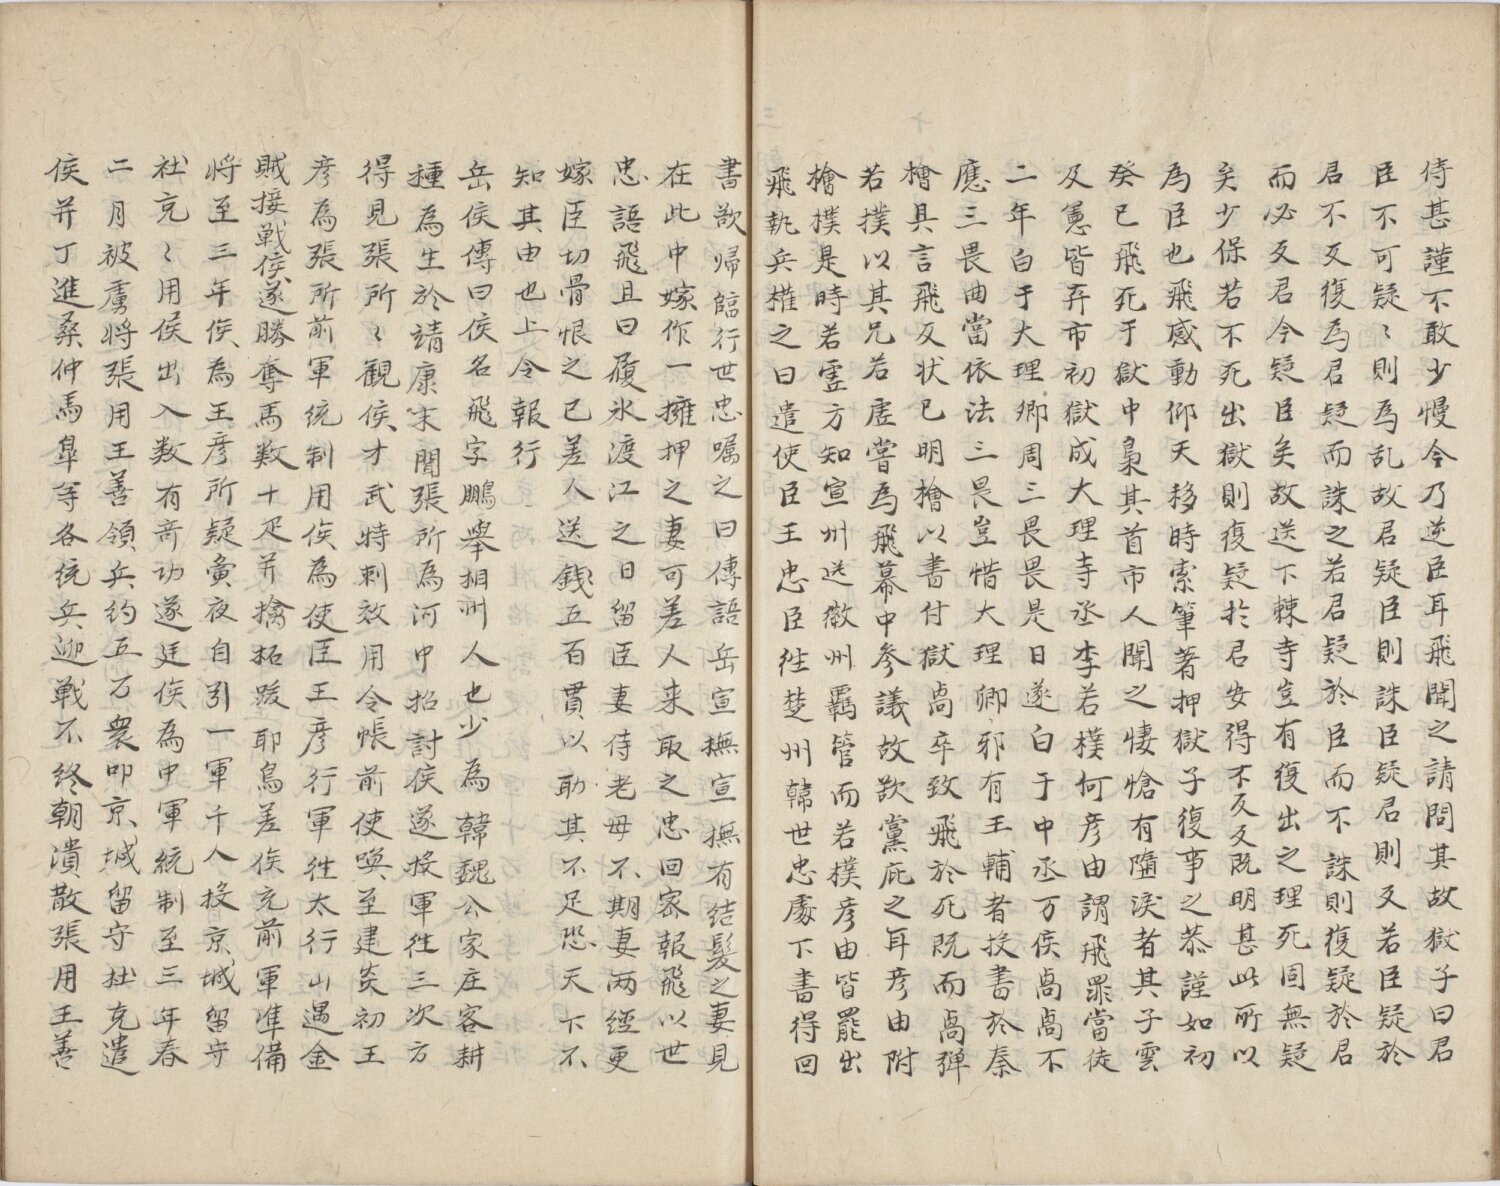 侍甚謹不敢少慢今乃逆臣耳飛聞之請問其故獄子曰君
臣不可疑〻則為乱故君疑臣則誅臣疑君則反若臣疑於
君不反復為君疑而誅之若君疑於臣而不誅則復疑於君
而必反君今疑臣矣故送下棘寺豈有復出之理死固無疑
矣少保若不死出獄則復疑於君安得不反反既明甚此所以
為臣也飛感動仰天移時索筆著押獄子復事之恭謹如初
癸巳飛死于獄中梟其首市人聞之悽愴有墮淚者其子雲
及憲皆弃市初獄成大理寺丞李若樸何彦由謂飛罪當徒
二年白于大理卿周三畏畏是日遂白于中丞万俟卨卨不
應三畏曲當依法三畏豈惜大理卿邪有王輔者投書於秦
檜具言飛反状已明檜以書付獄卨卒致飛於死既而卨彈
若撲以其兄若虗嘗為飛幕中參議故欲黨庇之耳彦由附
檜樸是時若虗方知宣州送徽州羈管而若樸彦由皆罷出
飛執兵權之日遣使臣王忠臣徃楚州韓世忠處下書得回
書欲帰臨行世忠嘱之曰傳語岳宣撫宣撫有結髮之妻見
在此中嫁作一擁押之妻可差人来取之忠回密報飛以世
忠語飛且曰履氷渡江之日留臣妻侍老母不期妻两經更
嫁臣切骨恨之已差人送錢五百貫以助其不足恐天下不
知其由也上令報行
岳侯傳曰侯名飛字鵬舉相州人也少為韓魏公家庄客耕
種為生於靖康末聞張所為河中招討侯遂投軍徃三次方
得見張所〻觀侯才武特刺效用令帳前使喚至建炎初王
彦為張所前軍統制用侯為使臣王彦行軍徃太行山遇金
賊接戰侯遂勝奪馬数十疋并擒拓跋耶烏差侯充前軍准備
将至三年侯為王彦所疑夤夜自引一軍千人投京城留守
杜充〻用侯出入数有竒功遂廷侯為中軍統制至三年春
二月被虜将張用王善領兵約五万衆叩京城留守杜充遣
侯并丁進桑仲馬臯等各統兵迎戦不终朝潰散張用王善